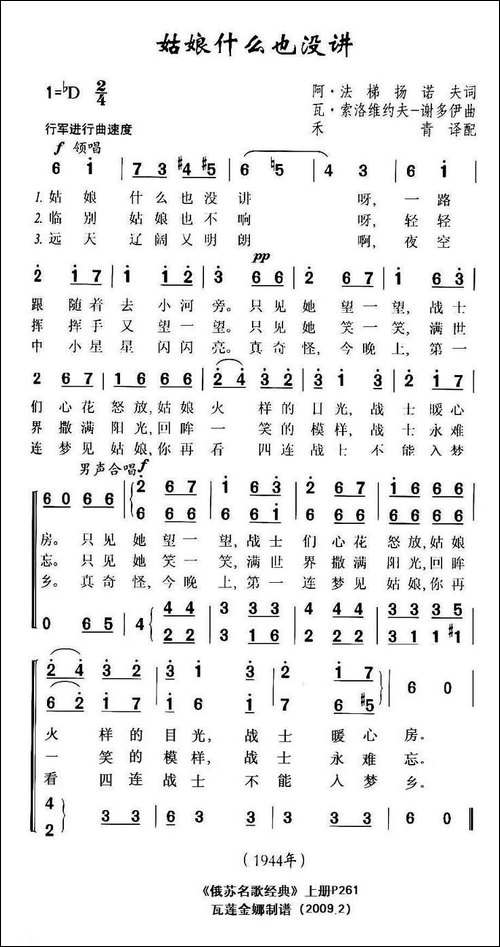 姑娘什么也没讲
1=♭D 2/4
阿·法梯扬诺夫词
瓦·索洛维约夫-谢多伊曲
禾青译配
行军进行曲速度
f 领唱
6 i 7 3 #4 #5 6 ♮5 4 3 6 i
1.姑娘什么也没讲呀,一路
2.临别姑娘也不响呀,轻轻
3.远天辽阔又明朗啊,夜空
pp
2 i 7 i i 2 3 6 6 2 6 7 i 6 3
跟随着去小河旁。只见她望一望,战士
挥挥手又望一望。只见她笑一笑,满世
中小星星闪闪亮。真奇怪,今晚上,第一
2 6 7 i 6 6 6 2 4 3 2 3 i 3 2 2 i 7
们心花怒放,姑娘火样的目光,战士暖心
界撒满阳光,回眸一笑的模样,战士永难
连梦见姑娘,你再看四连战士不能入梦
男声合唱 f
6 0 6 6 2 6 7 i 6 3 2 6 7 i 6 6 6
6 6 6 6 6 i 6 6 7 6 6 6 6
房。只见她望一望,战士们心花怒放,姑娘
忘。只见她笑一笑,满世界撒满阳光,回眸
乡。真奇怪,今晚上,第一连梦见姑娘,你再
0 6 5 4 4 4 4 3 3 3 4 4 4 3 3 3 5
2 2 2 3 1 6 2 2 2 3 1 1 #1
2 4 3 2 3 i 3 2 2 i 7 6 0
6 2 i 7 i 6 #5
火样的目光,战士暖心房。
一笑的模样,战士永难忘。
看四连战士不能入梦乡。
4 3 3 6 3 3 3 3 6 0
2
(1944年)
《俄苏名歌经典》上册P261
瓦莲金娜制谱(2009.2)